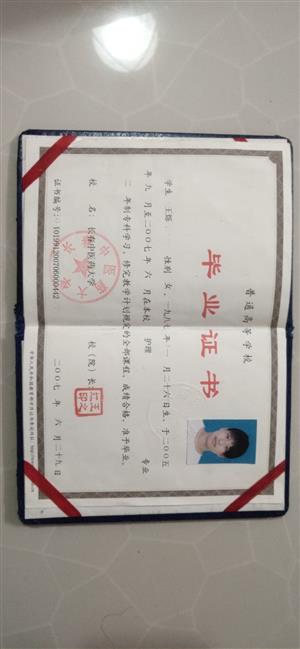 普通高等学校
毕业证书
学生 王 性别 女，一九八七年 一 月二十六日生，于二〇〇五
年 九 月至二〇〇七 年 六 月在本校 护理 专业
二 年制专科学习，修完教学计划规定的全部课程，成绩合格，准予毕业。
校 名：长春中医药大学
校（院）长：
证书编号：101991200706000442
二〇〇七 年 六 月二十九日